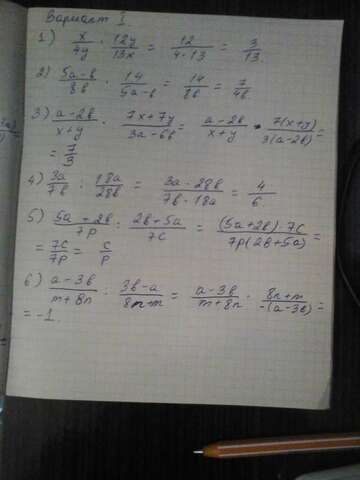 Вариант I.
1) x/4y · 12y/13x = 12/4·13 = 3/13.
2) 5a-в/8в · 14/5a-в = 14/8в = 7/4в
3) a-2в/x+y · 7x+7y/3a-6в = a-2в/x+y · 7(x+y)/3(a-2в) =
= 7/3
4) 3a/7в : 18a/28в = 3a·28в/7в·18a = 4/6.
5) 5a+2в/7p : 2в+5a/7c = (5a+2в)·7c/7p(2в+5a) =
= 7c/7p = c/p
6) a-3в/m+8n : 3в-a/8n+m = a-3в/m+8n · 8n+m/-(a-3в) =
= -1.